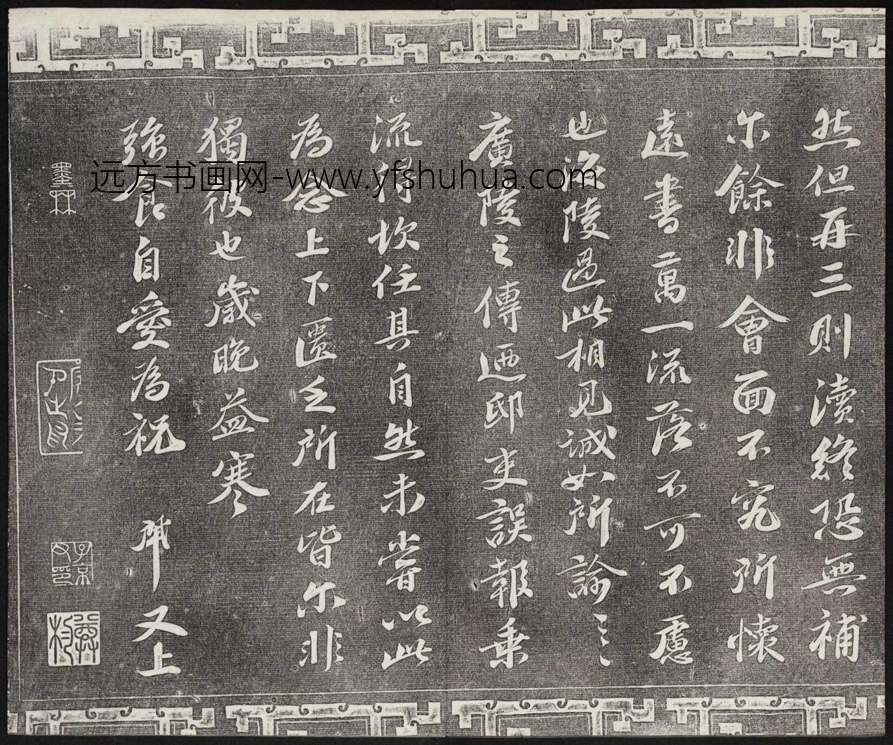 然但再三則瀆終恐無補
尔餘非會面不究所懷
遠書萬一流落不可不慮
也涪陵過此相見誠如所諭云云
廣陵之傳迺邸吏誤報乗
流得坎任其自然未嘗以此
為念上下匱乏所在皆尔非
獨彼也歲晚益寒
強食自愛為祝  又上
墨林
子京
远方书画网-www.yfshuhua.com